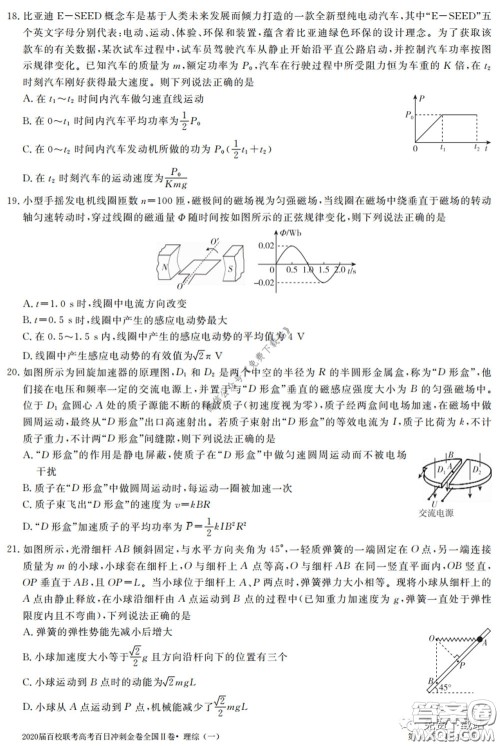 18. 比亚迪 E－SEED 概念车是基于人类未来发展而倾力打造的一款全新型纯电动汽车，其中“E－SEED”五
个英文字母分别代表：电动、运动、体验、环保和装置，蕴含着比亚迪绿色环保的设计理念。为了获取该
款车的有关数据，某次试车过程中，试车员驾驶汽车从静止开始沿平直公路启动，并控制汽车功率按图
示规律变化。已知汽车的质量为 m，额定功率为 P₀，汽车在行驶过程中所受阻力恒为车重的 K 倍，在 t₂
时刻汽车刚好获得最大速度。则下列说法正确的是
A. 在 t₁～t₂ 时间内汽车做匀速直线运动
B. 在 0～t₁ 时间内汽车平均功率为 1/2 P₀
C. 在 0～t₂ 时间内汽车发动机所做的功为 P₀(1/2 t₁＋t₂)
D. 在 t₂ 时刻汽车的运动速度为 P₀/Kmg
P
P₀
0 t₁ t₂ t
19. 小型手摇发电机线圈匝数 n＝100 匝，磁极间的磁场视为匀强磁场，当线圈在磁场中绕垂直于磁场的转动
轴匀速转动时，穿过线圈的磁通量 Φ 随时间按如图所示的正弦规律变化，则下列说法正确的是
N S O O′
Φ/Wb
0.02
0 0.5 1.0 1.5 2.0 t/s
−0.02
A. t＝1.0 s 时，线圈中电流方向改变
B. t＝1.5 s 时，线圈中产生的感应电动势最大
C. 在 0.5～1.5 s 内，线圈中产生的感应电动势的平均值为 4 V
D. 线圈中产生感应电动势的有效值为 √2π V
20. 如图所示为回旋加速器的原理图，D₁ 和 D₂ 是两个中空的半径为 R 的半圆形金属盒，称为“D 形盒”，他
们接在电压和频率一定的交流电源上，并置于与“D 形盒”垂直的磁感应强度大小为 B 的匀强磁场中。
位于 D₁ 盒圆心 A 处的质子源能不断的释放质子（初速度视为零），质子经两盒间电场加速，在磁场中做
圆周运动，最终从“D 形盒”出口高速射出。若质子束射出“D 形盒”的等效电流为 I，质子比荷为 k，不计
质子重力，不计两“D 形盒”间缝隙，则下列说法正确的是
A. “D 形盒”的作用是静电屏蔽，使质子在“D 形盒”中做匀速圆周运动而不被电场
干扰
B. 质子在“D 形盒”中做圆周运动时，每运动一圈被加速一次
C. 质子束飞出“D 形盒”的速度为 v＝kBR
D. “D 形盒”加速质子的平均功率为 P̄＝1/2 kIB²R²
B
D₁ A D₂
U
交流电源
21. 如图所示，光滑细杆 AB 倾斜固定，与水平方向夹角为 45°，一轻质弹簧的一端固定在 O 点，另一端连接
质量为 m 的小球，小球套在细杆上，O 与细杆上 A 点等高，O 与细杆 AB 在同一竖直平面内，OB 竖直，
OP 垂直于 AB，且 OP＝L。当小球位于细杆上 A、P 两点时，弹簧弹力大小相等。现将小球从细杆上的
A 点由静止释放，在小球沿细杆由 A 点运动到 B 点的过程中（已知重力加速度为 g，弹簧一直处于弹性
限度内且不弯曲），下列说法正确的是
A. 弹簧的弹性势能先减小后增大
B. 小球加速度大小等于 √2/2 g 且方向沿杆向下的位置有三个
C. 小球运动到 B 点时的动能为 √2 mgL
D. 小球从 A 点运动到 P 点，机械能减少了 √2/2 mgL
O A
P
B 45°
2020届百校联考高考百日冲刺金卷全国Ⅱ卷·理综（一）
答案圈
MXQE.COM